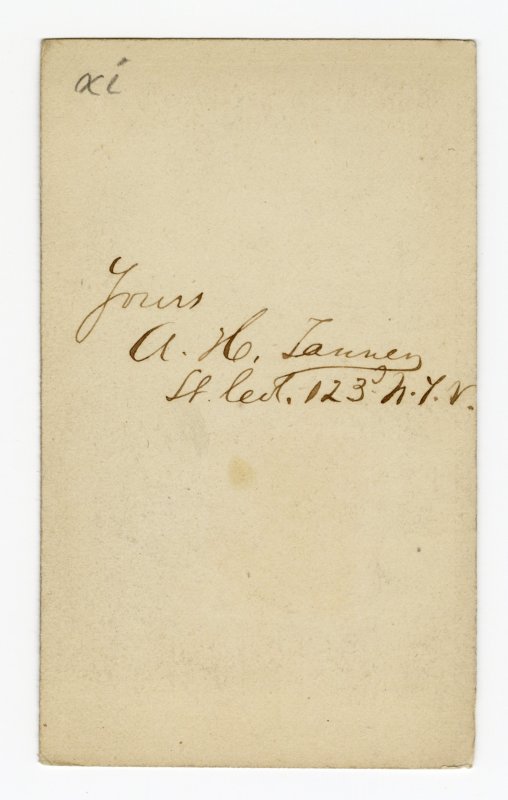 xi
Yours
A. H. Tanner
Lt. Col. 123d N.Y.V.